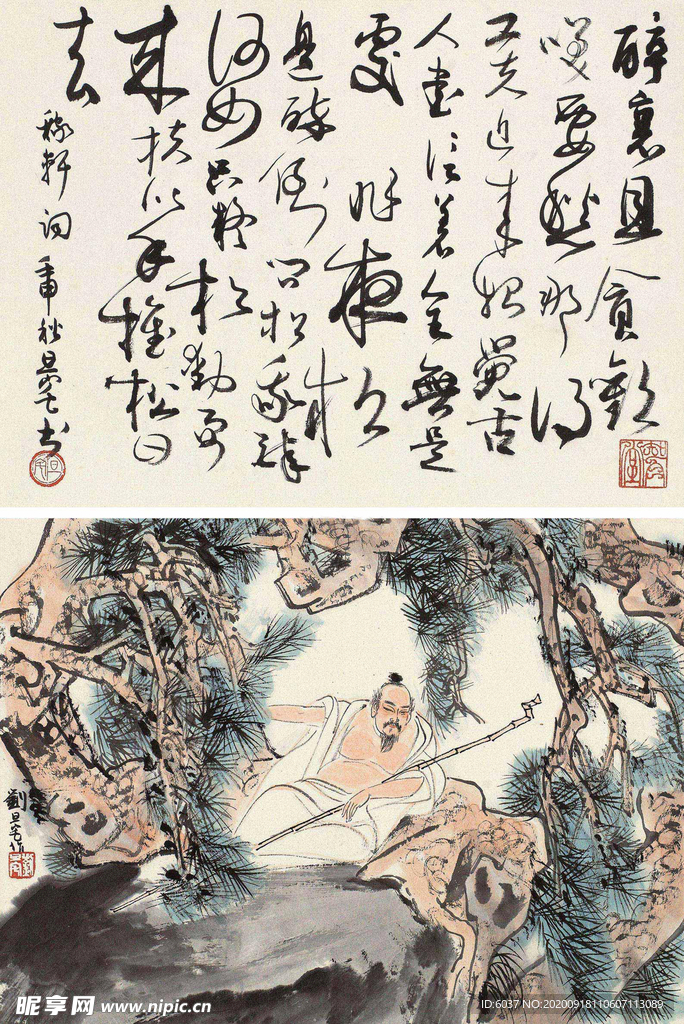 醉裏且貪歡
笑要愁那得
工夫近来始覺古
人書信著全無是
處 昨夜松
邊醉倒問松我醉
何如只疑松動要
来扶以手推松曰
去
稼軒詞 庚申秋旦宅书
劉旦宅作
昵享网 www.nipic.cn
ID:6037 NO:20200918110607113089